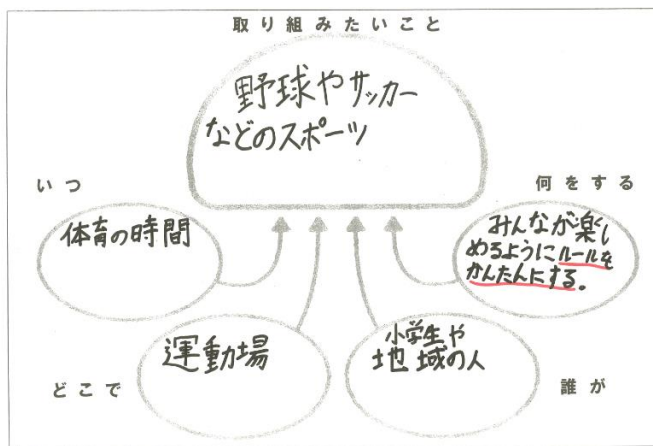 取り組みたいこと
野球やサッカー
などのスポーツ
いつ
体育の時間
何をする
みんなが楽し
めるようにルールを
かんたんにする。
どこで
運動場
小学生や
地域の人
誰が